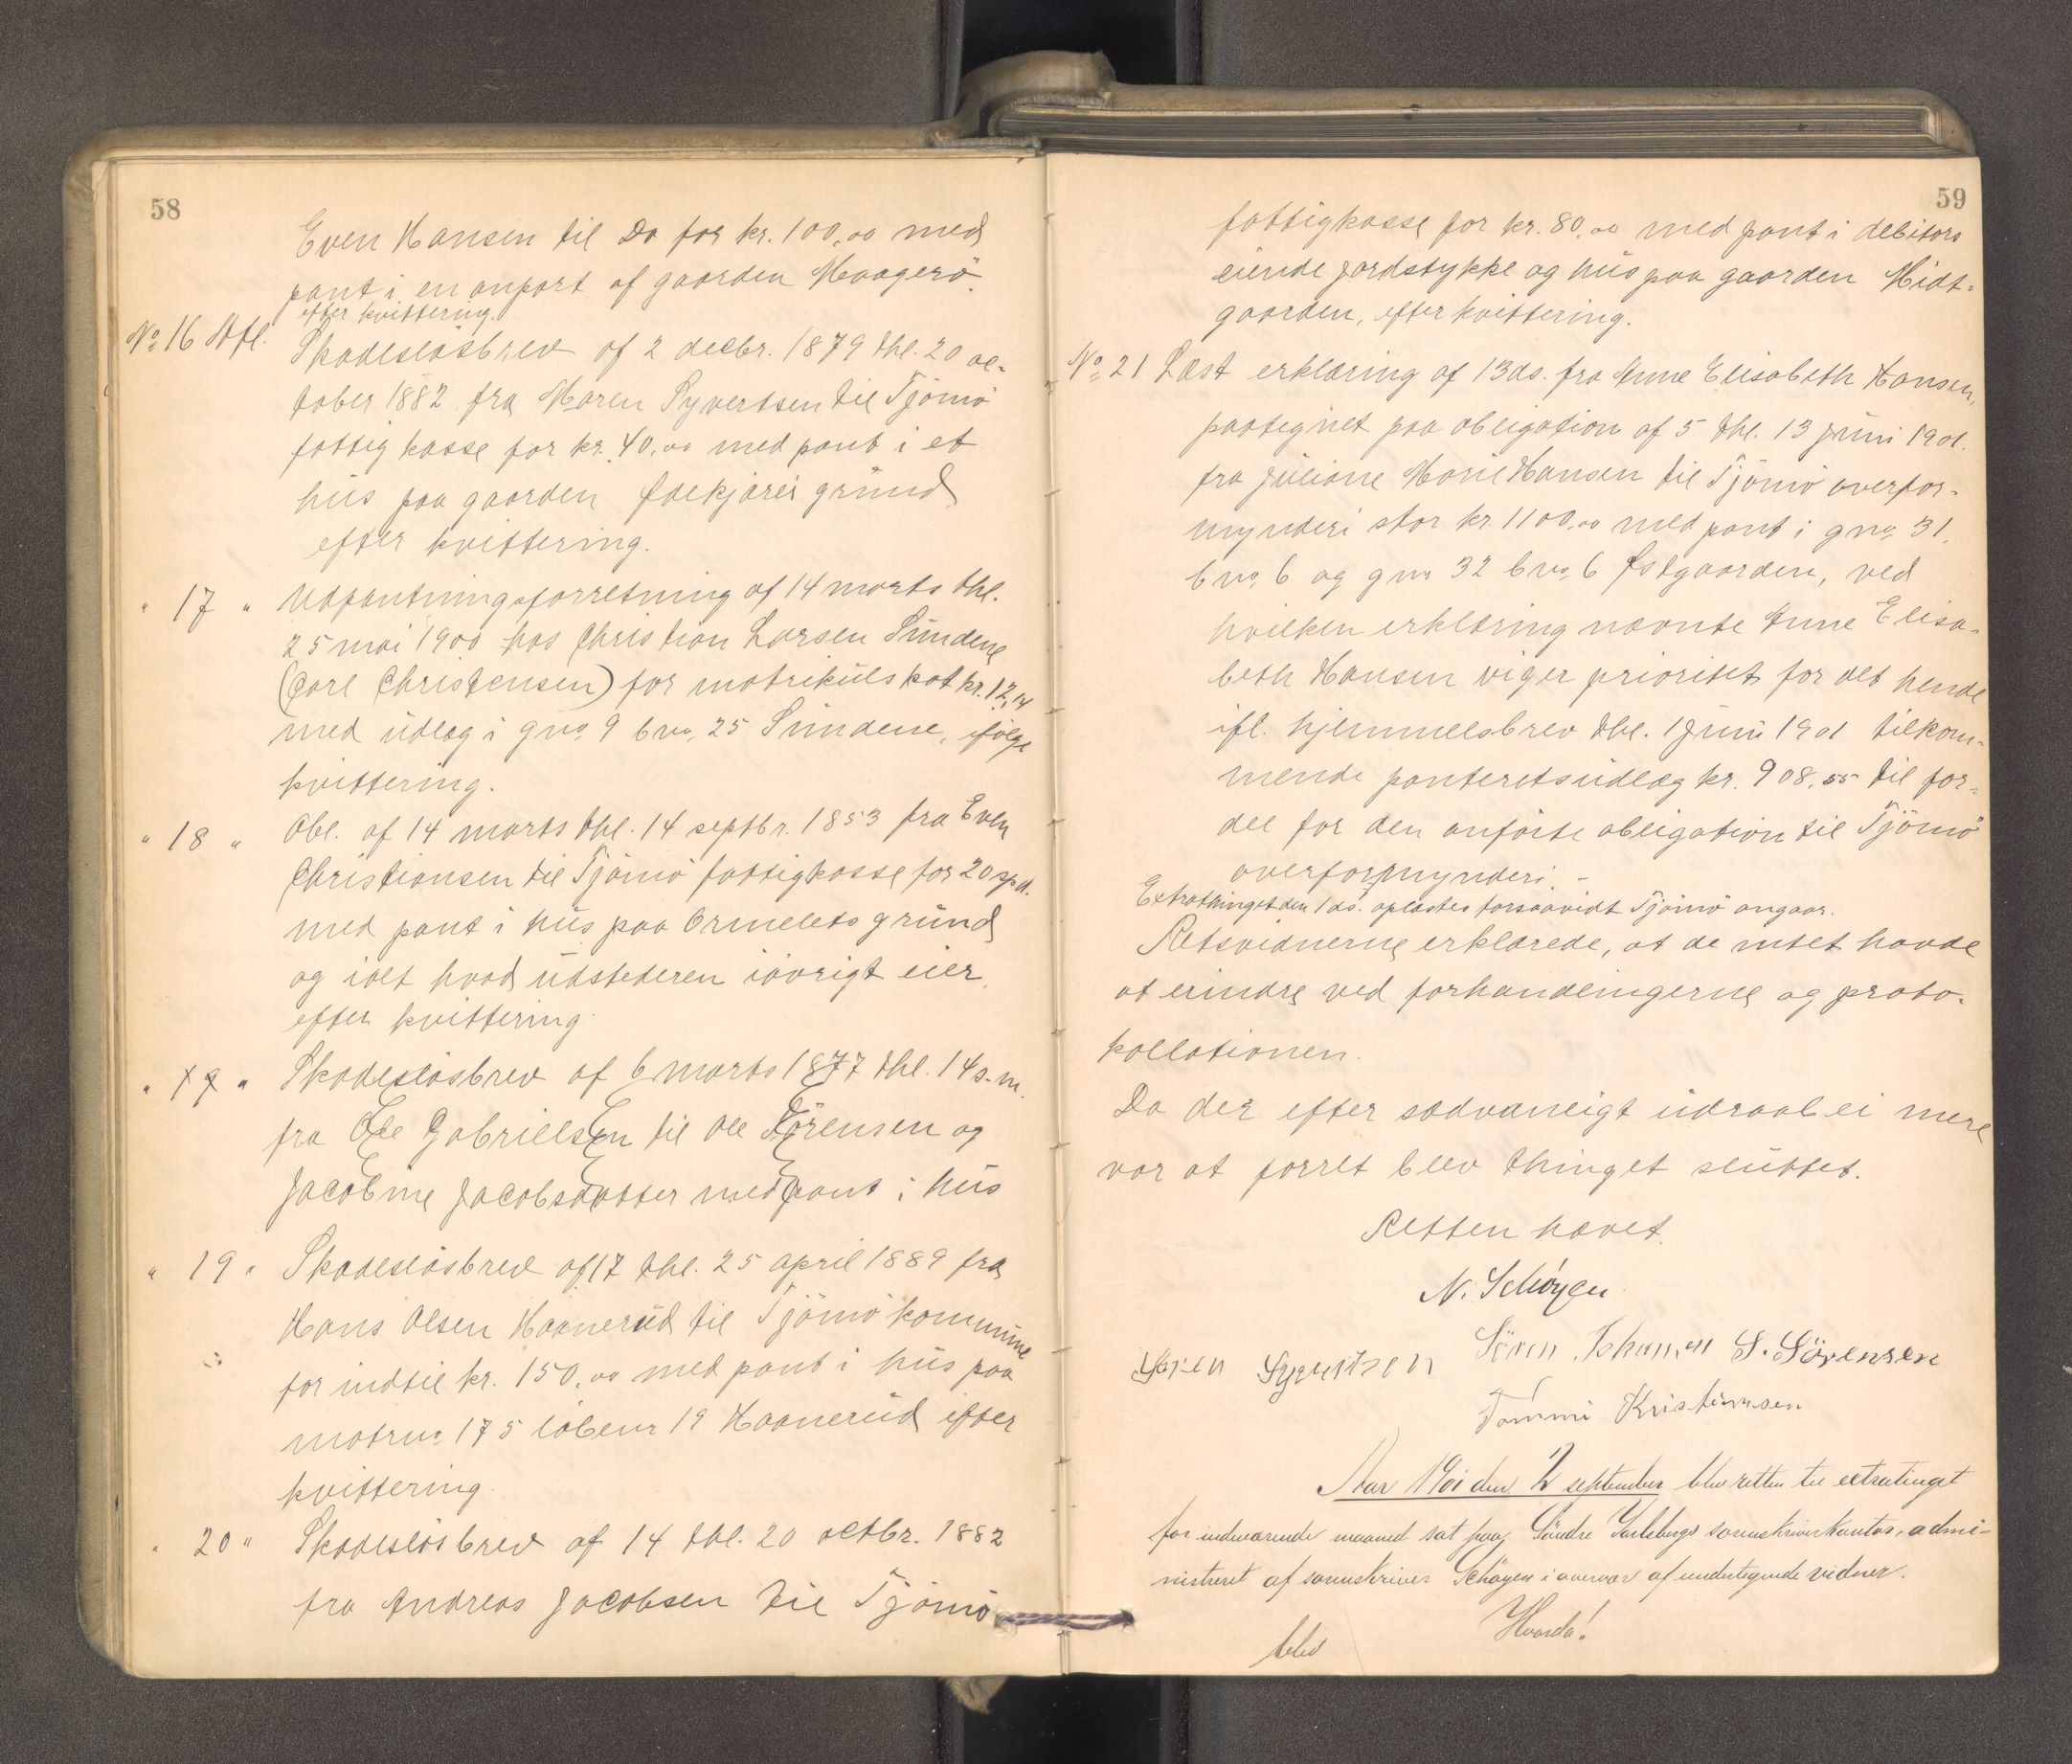 58
Even Hansen til Do for kr. 100,00 med
pant i en anpart af gaarden Maagerö.
efter kvittering.
No 16 Afl. Skadeslösbrev af 2 decbr. 1879 thl. 20 oc-
tober 1882 fra Maren Syvertsen til Tjömö
fattigkasse for kr. 40,00 med pant i et
hus paa gaarden Ødekjærs grund
efter kvittering.
" 17 " Udpantningsforretning af 14 marts thl.
25 mai 1900 hos Christian Larsen Sundene
(Carl Christensen) for matrikulskat kr. 12,14
med udlæg i gno 9 bno 25 Sundene, ifölge
kvittering.
" 18 " Obl. af 14 marts thl. 14 septbr. 1853 fra Even
Christiansen til Tjömö fattigkasse for 20 spd.
med pant i hus paa Ormelets grund
og ialt hvad udstederen iövrigt eier,
efter kvittering.
" 19 " Skadeslösbrev af 6 marts 1877 thl. 14 s.m.
fra Ole Gabrielsen til Ole Sörensen og
Jacobine Jacobsdatter med pant i hus
" 19 " Skadeslösbrev af 17 thl. 25 april 1889 fra
Hans Olsen Haanerud til Tjömö kommune
for indtil kr. 150,00 med pant i hus paa
matrno 175 löbenr 19 Haanerud efter
kvittering.
" 20 " Skadeslösbrev af 14 thl. 20 octbr. 1882
fra Andreas Jacobsen til Tjömö
59
fattigkasse for kr. 80,00 med pant i debitors
eiende jordstykke og hus paa gaarden Midt-
gaarden, efter kvittering.
No 21 Læst erklæring af 13 ds. fra Anne Elisabeth Hansen,
paategnet paa obligation af 5 thl. 13 juni 1901.
fra Juliane Marie Hansen til Tjömö overfor-
mynderi stor kr. 1100,00 med pant i gno 31,
bno 6 og gno 32 bno 6 Østgaarden, ved
hvilken erklæring nævnte Anne Elisa-
beth Hansen viger prioritet for det hende
ifl. hjemmelsbrev thl. 1 juni 1901 tilkom-
mende panteretsudlæg kr. 908,55 til for-
del for den anförte obligation til Tjömö
overformynderi. -
Extrathinget den 1 ds. oplæstes forsaavidt Tjömö angaar.
Retsvidnerne erklærede, at de intet havde
at erindre ved forhandlingerne og proto-
kollationen.
Da der efter sædvanligt udraab ei mere
var at forret blev thinget sluttet.
Retten hævet.
N. Schöyen.
Sören Johannes S. Sörensen
Sören Syvertsen
Tommi Kristiansen
Aar 1901 den 2 september blev retten til extratinget
for indeværende maaned sat paa Söndre Jarlsbergs sorenskriverkontor, admi-
nistreret af sorenskriver Schöyen i overvær af undertegnede vidner.
Hvorda!
blev